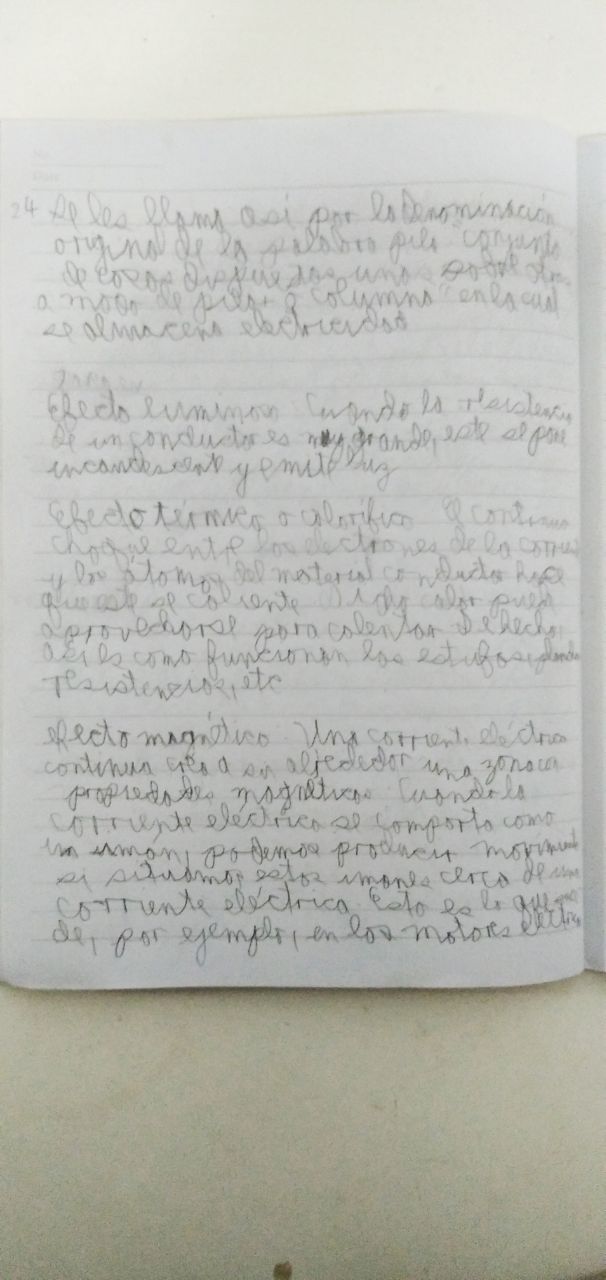 24 Se les llama asi por la Denominación
origina de la palabra pila "conjunto
de cosas dispuestas unas sobre otras
a modo de pilar o columna" en la cual
se almacena electricidad
Efecto luminoso Cuando la resistencia
de un conductor es muy grande, este se pone
incandescente y emite luz
Efecto térmico o calorífico El continuo
choque entre los electrones de la corrie
y los átomos del material conductor hace
que este se caliente Dicho calor puede
aprovecharse para calentar De hecho,
asi es como funcionan las estufas, planchas
resistencias, etc
Efecto magnético Una corriente eléctrica
continua crea a su alrededor una zona con
propiedades magnéticas Cuando la
corriente eléctrica se comporta como
un iman, podemos producir movimiento
si situamos estos imanes cerca de una
corriente eléctrica. Esto es lo que
de, por ejemplo, en los motores eléctricos